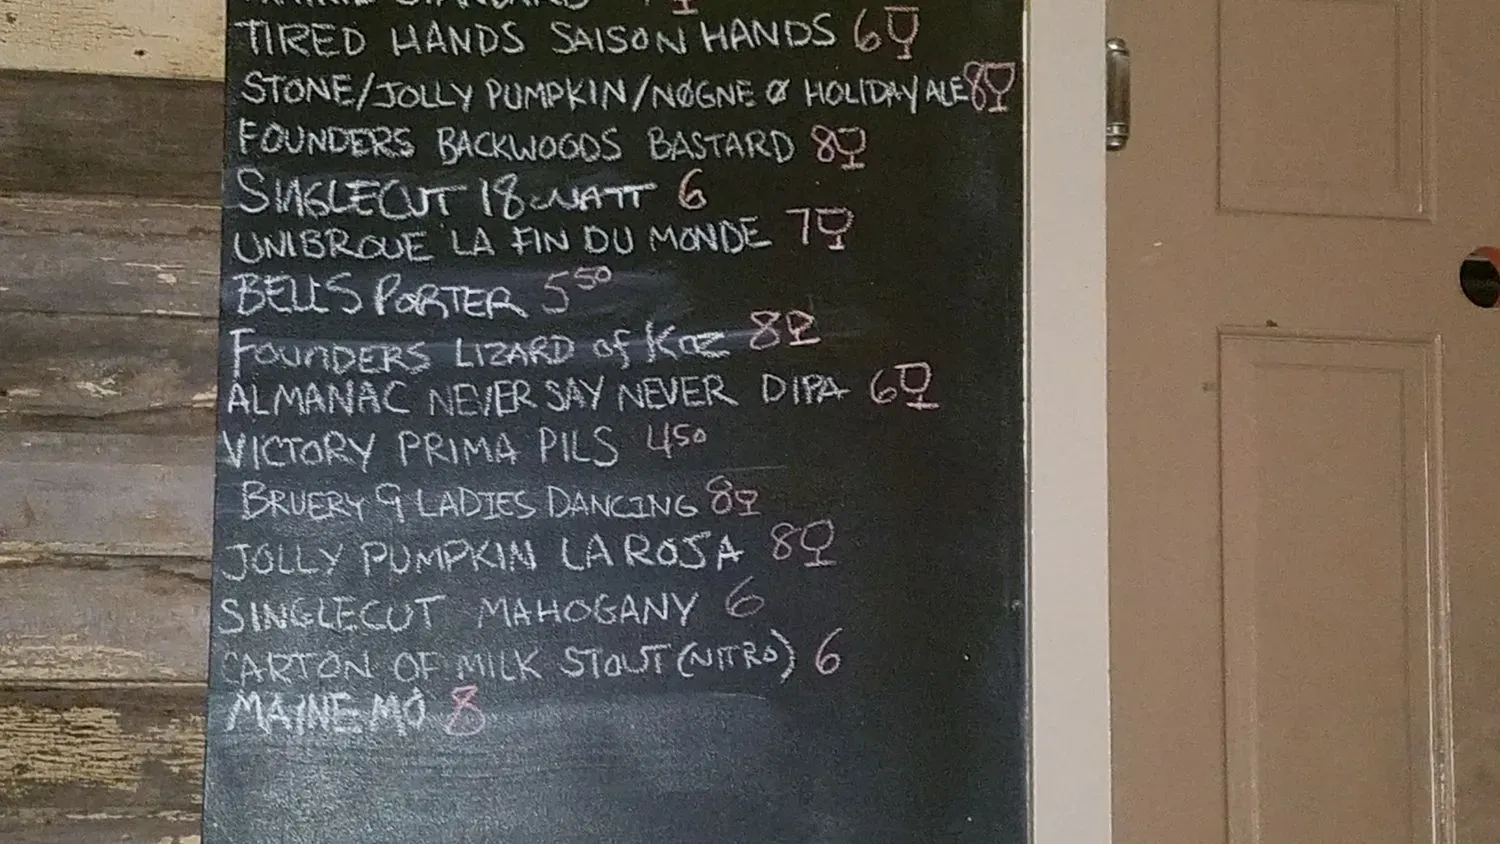 STANDARD
TIRED HANDS SAISON HANDS 6
STONE/JOLLY PUMPKIN/NØGNE Ø HOLIDAY ALE 8
FOUNDERS BACKWOODS BASTARD 8
SINGLECUT 18 WATT 6
UNIBROUE LA FIN DU MONDE 7
BELLS PORTER 5 50
FOUNDERS LIZARD of KOZ 8
ALMANAC NEVER SAY NEVER DIPA 6
VICTORY PRIMA PILS 4 50
BRUERY 9 LADIES DANCING 8
JOLLY PUMPKIN LA ROJA 8
SINGLECUT MAHOGANY 6
CARTON OF MILK STOUT (NITRO) 6
MAINE MO 8